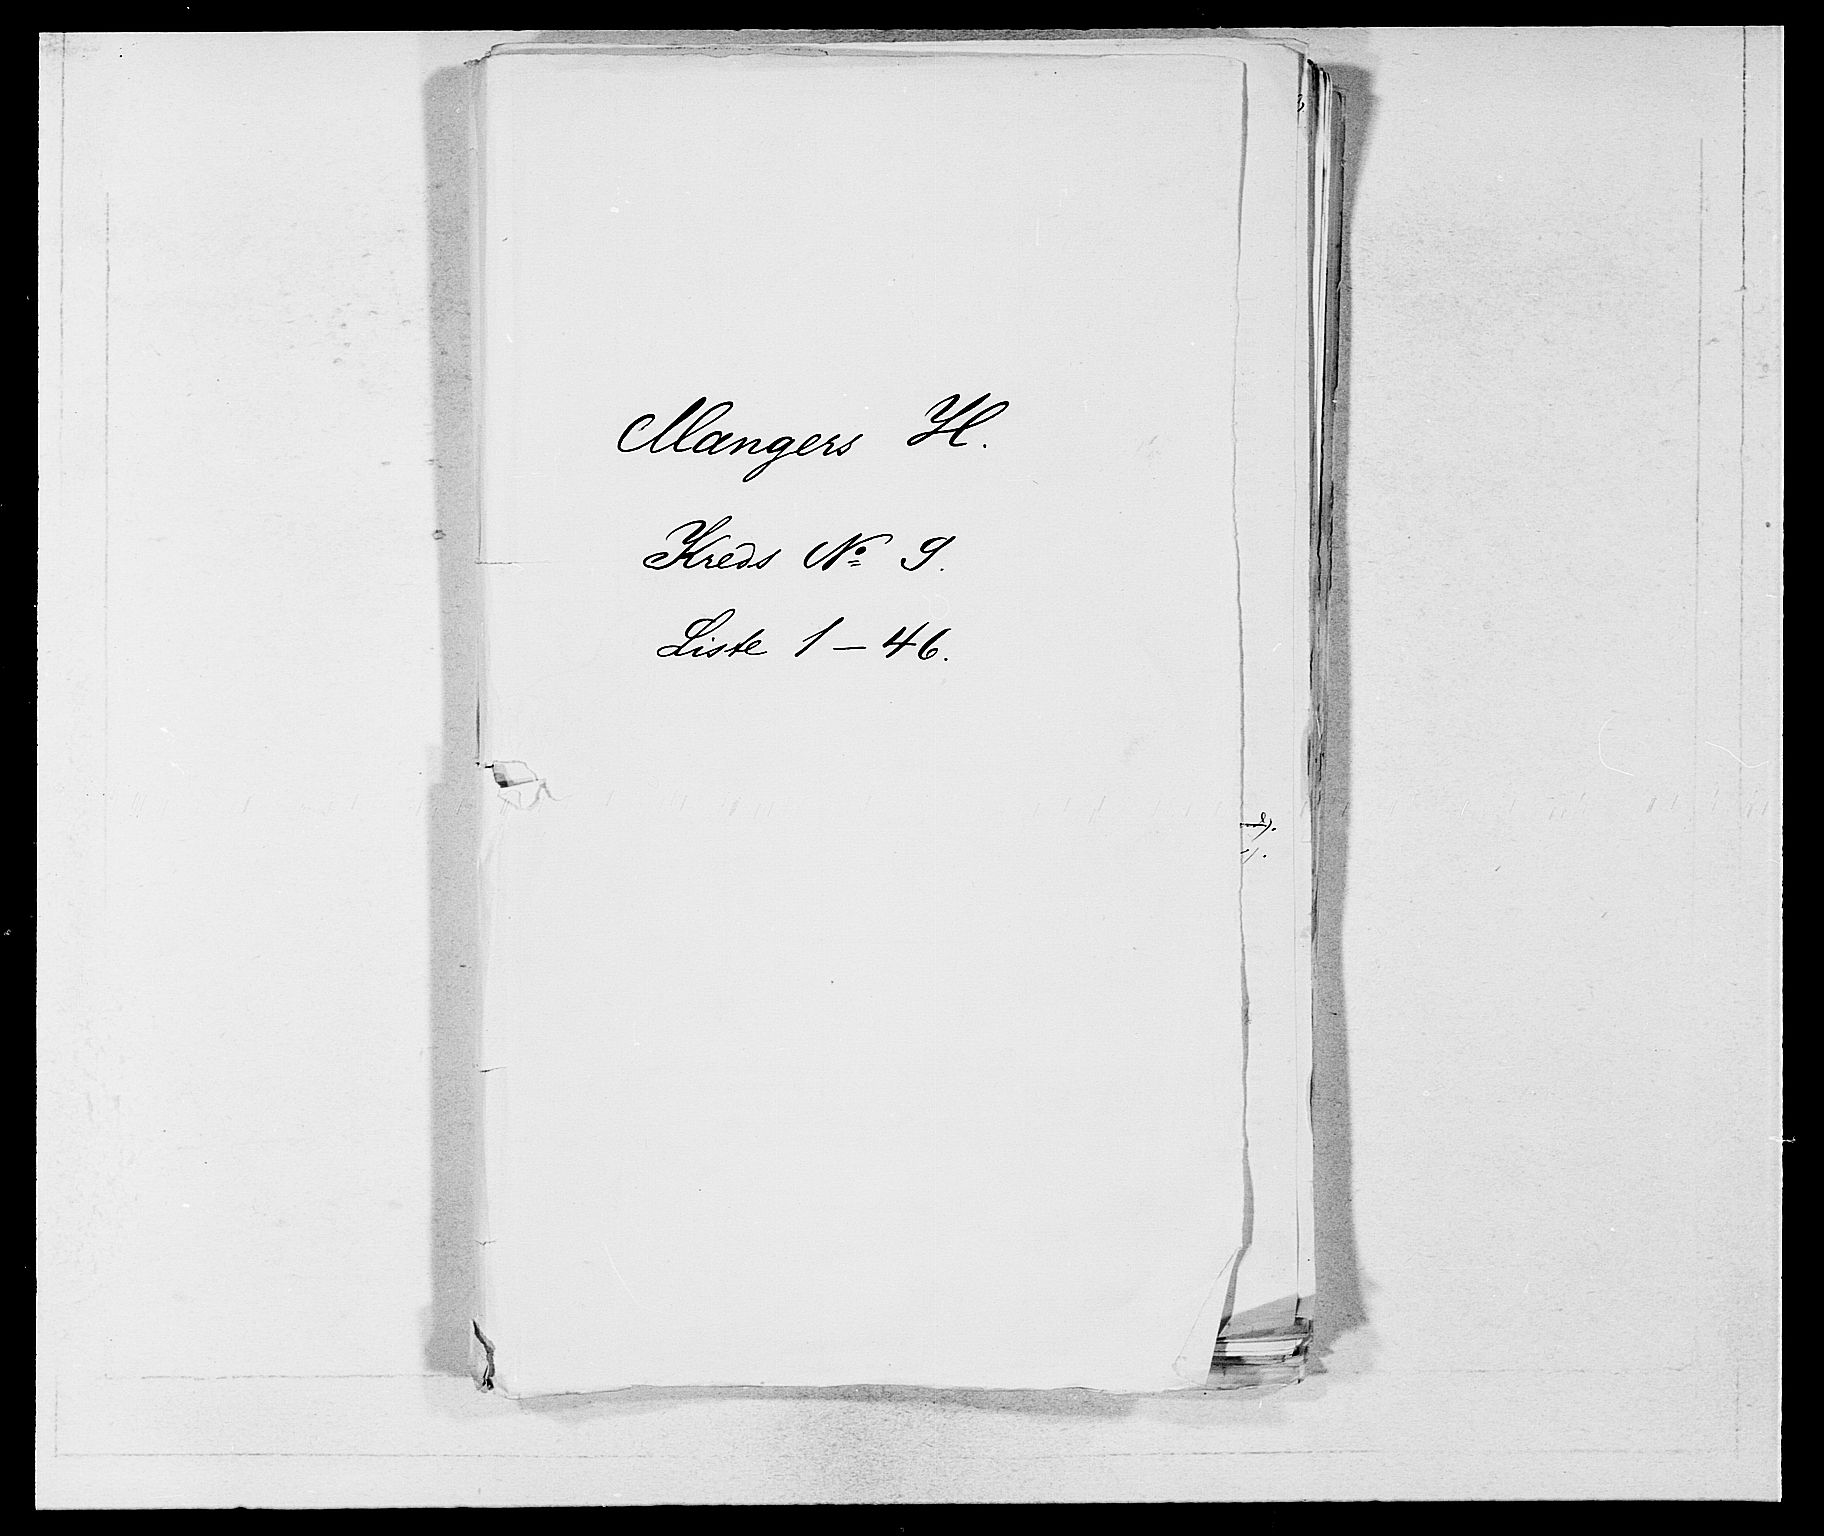 Mangers H.
Kreds No 9.
Liste 1 – 46.